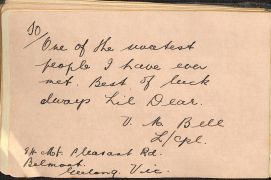 To/
One of the sweetest
people I have ever
met. Best of luck
always Lil Dear.
V. M. Bell
L/cpl.
Mt. Pleasant Rd.
Belmont.
Geelong. Vic.